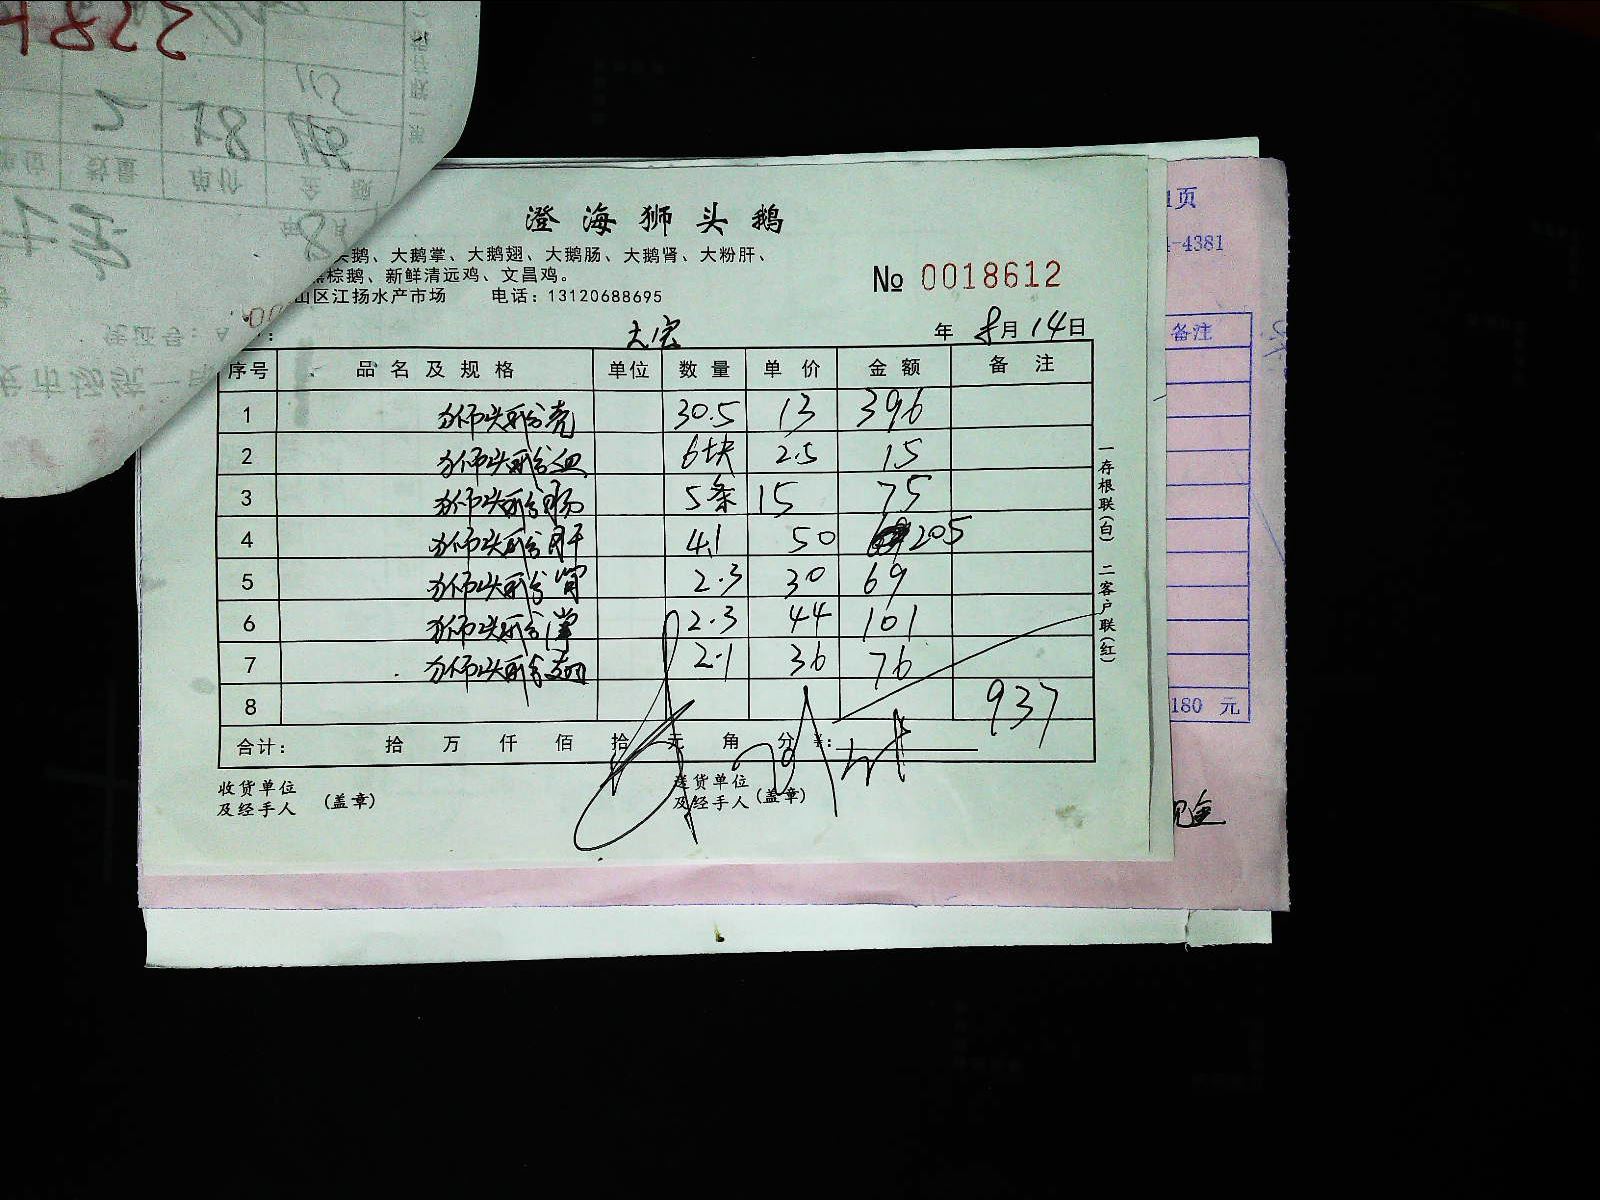 澄海狮头鹅
头鹅、大鹅掌、大鹅翅、大鹅肠、大鹅肾、大粉肝、
棕鹅、新鲜清远鸡、文昌鸡。
山区江扬水产市场 电话：13120688695
№ 0018612
年 8月14日
序号 品名及规格 单位 数量 单价 金额 备注
1 狮头鹅壳 30.5 13 396
2 狮头鹅血 6块 2.5 15
3 狮头鹅肠 5条 15 75
4 狮头鹅肝 4.1 50 205
5 狮头鹅肾 2.3 30 69
6 狮头鹅掌 2.3 44 101
7 狮头鹅翅 2.1 36 76
8 937
合计： 拾 万 仟 佰 拾 元 角 分 ¥：
收货单位
及经手人 (盖章)
送货单位
及经手人 (盖章)
一存根联(白) 二客户联(红)
1页
-4381
备注
180 元
现金